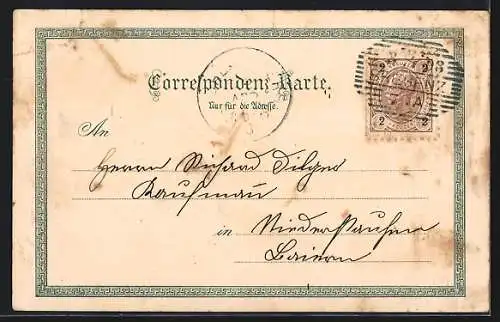 Correspondenz-Karte.
Nur für die Adresse.
2 2
2 2
An
Herrn Richard Dilger
Kaufmann
in Niederstaufen
Baiern